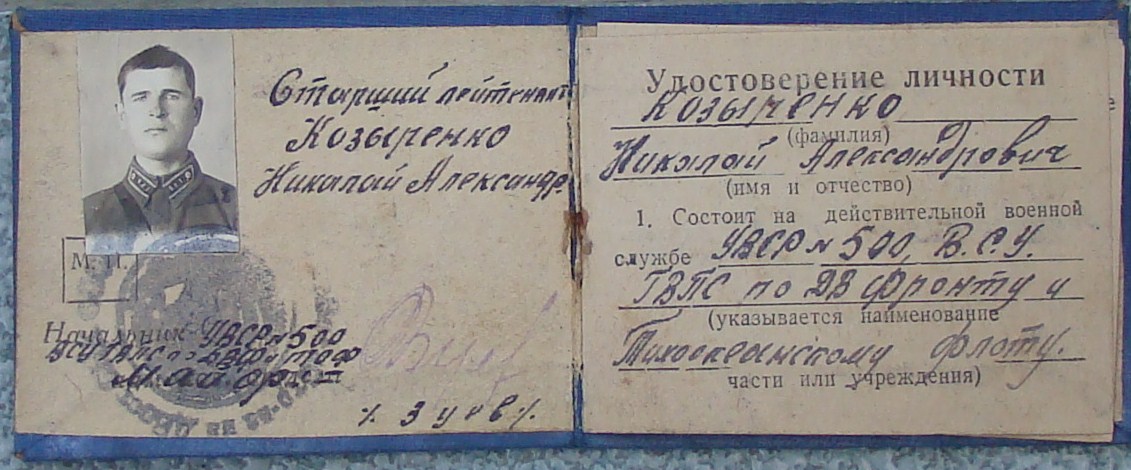 Старший лейтенант
Козыренко
Николай Александр
М. П.
Начальник УВСР № 500
ВСУ ГВПС по ДВФ и ТОФ
Майор
/Зуев/.
Удостоверение личности
Козыренко
(фамилия)
Николай Александрович
(имя и отчество)
1. Состоит на действительной военной
службе УВСР № 500, В.С.У.
ГВПС по ДВ Фронту и
(указывается наименование
Тихоокеанскому флоту.
части или учреждения)